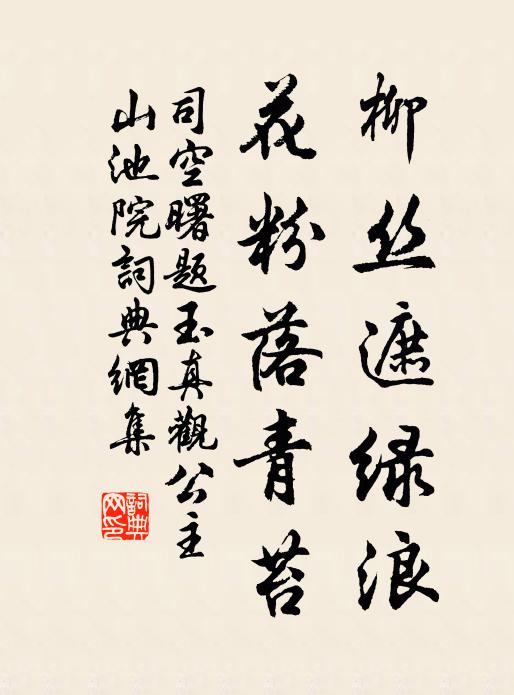 柳丝遮绿浪
花粉落青苔
司空曙题玉真觀公主
山池院詞典網集
詞典
网印